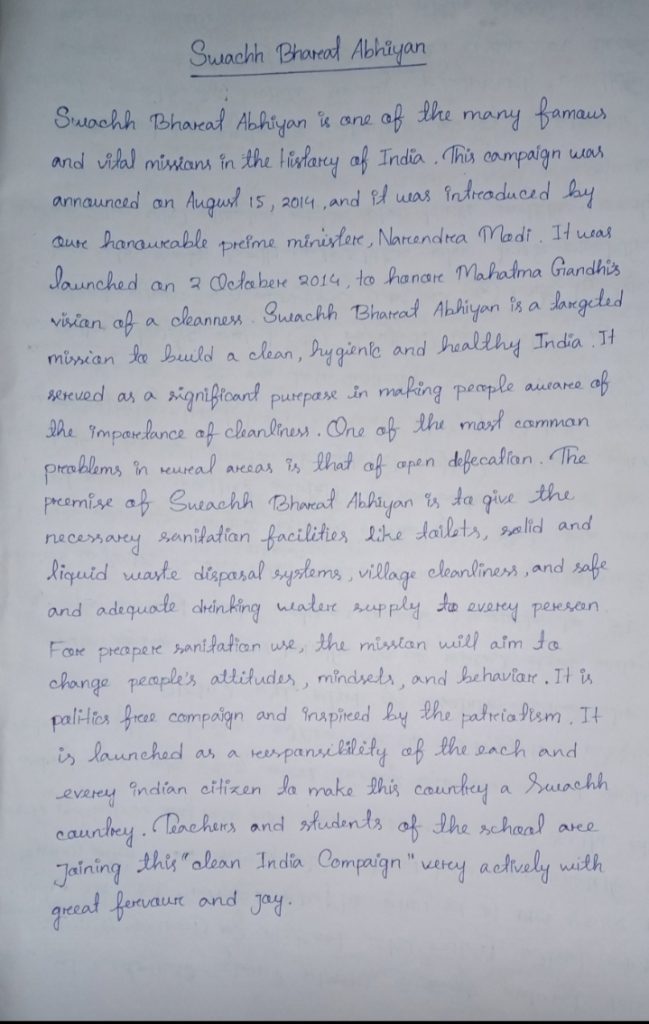 Swachh Bharat Abhiyan
Swachh Bharat Abhiyan is one of the many famous
and vital missions in the history of India. This campaign was
announced on August 15, 2014, and it was introduced by
our honourable prime minister, Narendra Modi. It was
launched on 2 October 2014, to honor Mahatma Gandhi's
vision of a cleanness. Swachh Bharat Abhiyan is a targeted
mission to build a clean, hygienic and healthy India. It
served as a significant purpose in making people aware of
the importance of cleanliness. One of the most common
problems in rural areas is that of open defecation. The
premise of Swachh Bharat Abhiyan is to give the
necessary sanitation facilities like toilets, solid and
liquid waste disposal systems, village cleanliness, and safe
and adequate drinking water supply to every person
For proper sanitation use, the mission will aim to
change people's attitudes, mindsets, and behavior. It is
politics free campaign and inspired by the patriotism. It
is launched as a responsibility of the each and
every indian citizen to make this country a Swachh
country. Teachers and students of the school are
Joining this "clean India Compaign" very actively with
great fervour and joy.